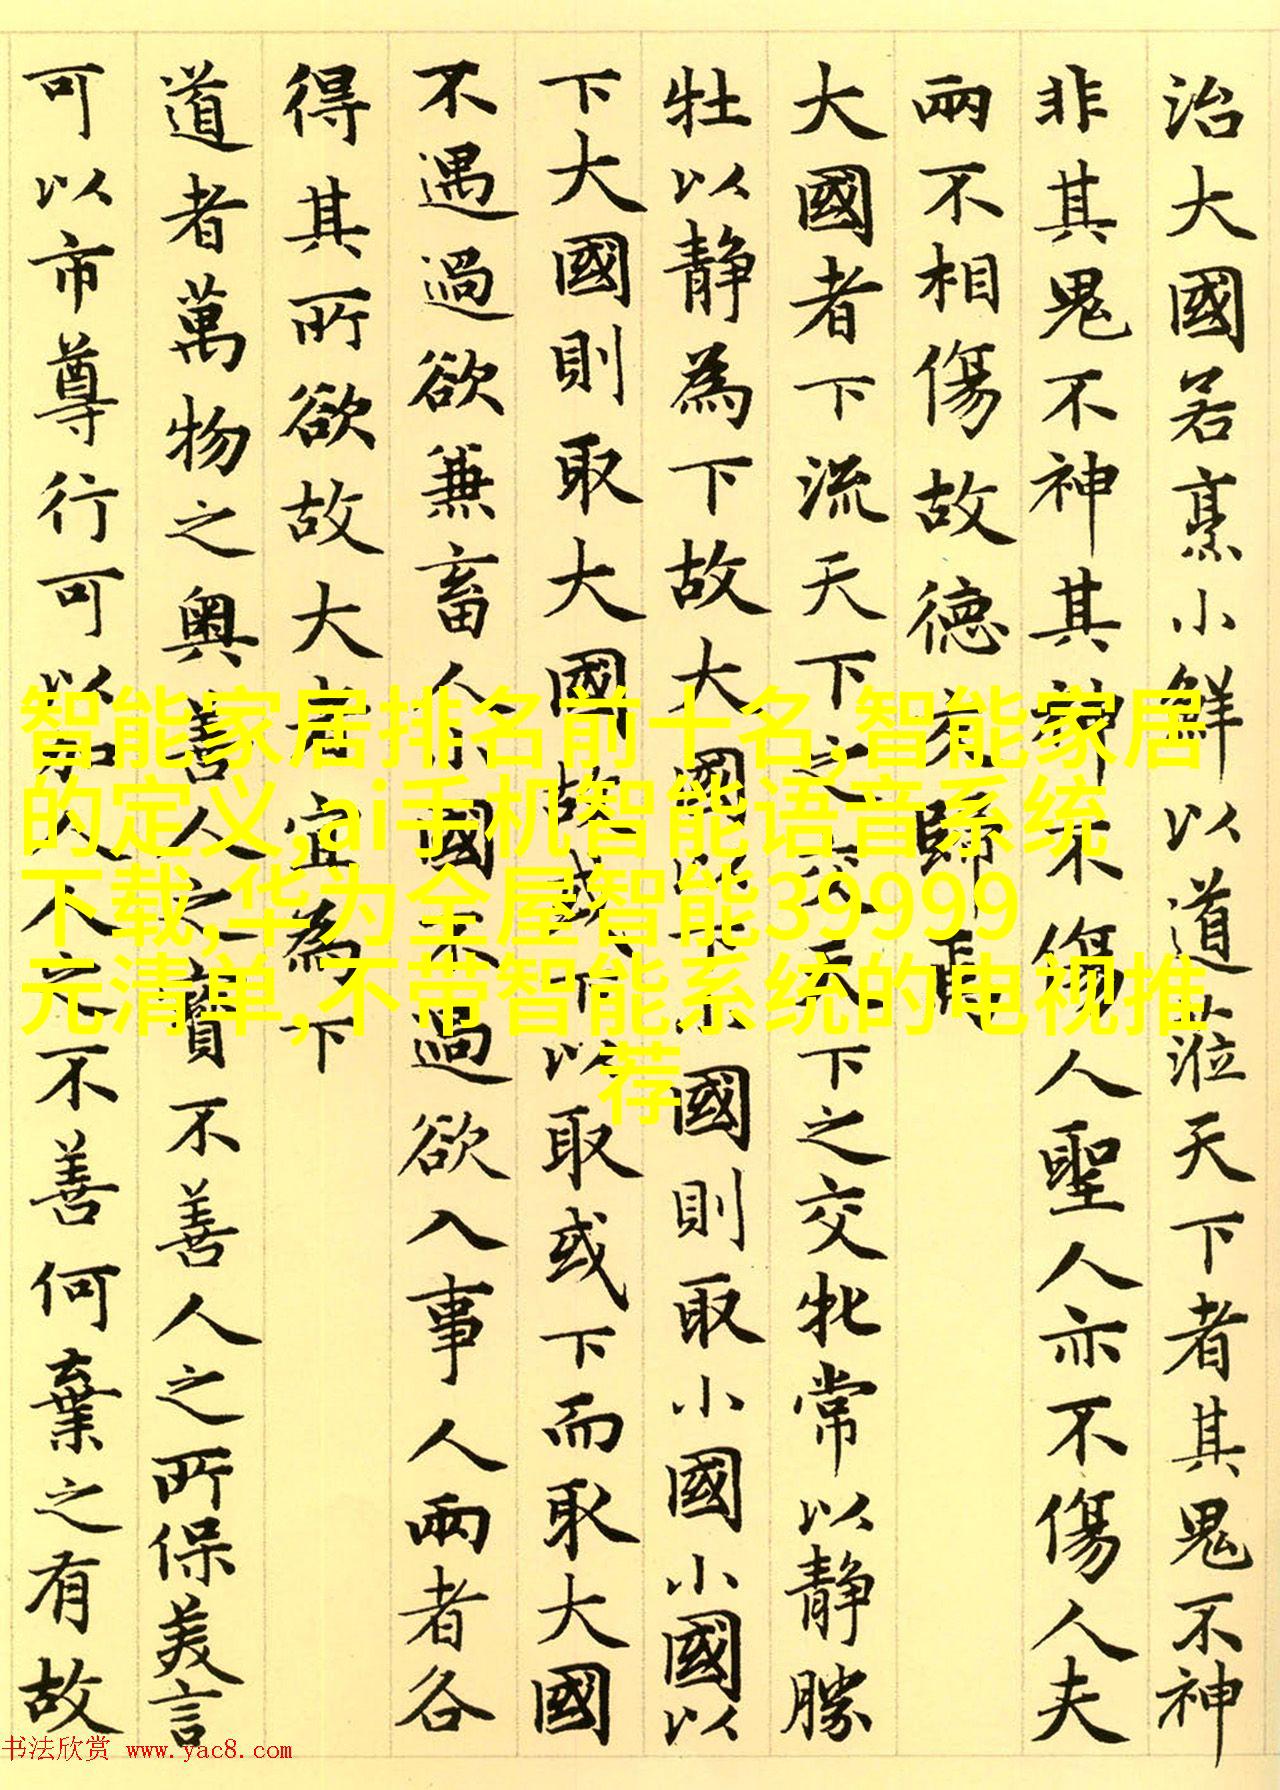 治大國若烹小鮮以道蒞天下者其鬼不神
非其鬼不神其神不傷人聖人亦不傷人夫
兩不相傷故德交歸焉
大國者下流天下之交天下之交牝常以静勝
牡以静為下故大國以下小國則取小國小國以
下大國則取大國故或下以取或下而取大國
不遇過欲兼畜人小國不過欲入事人兩者各
得其所欲故大者宜為下
道者萬物之奥善人之寶不善人之所保美言
可以市尊行可以加人人之不善何棄之有故
智能家居排名前十名,智能家居
的定义,ai手机智能语音系统
下载,华为全屋智能39999
元清单,不带智能系统的电视推
荐
书法欣赏 www.yac8.com